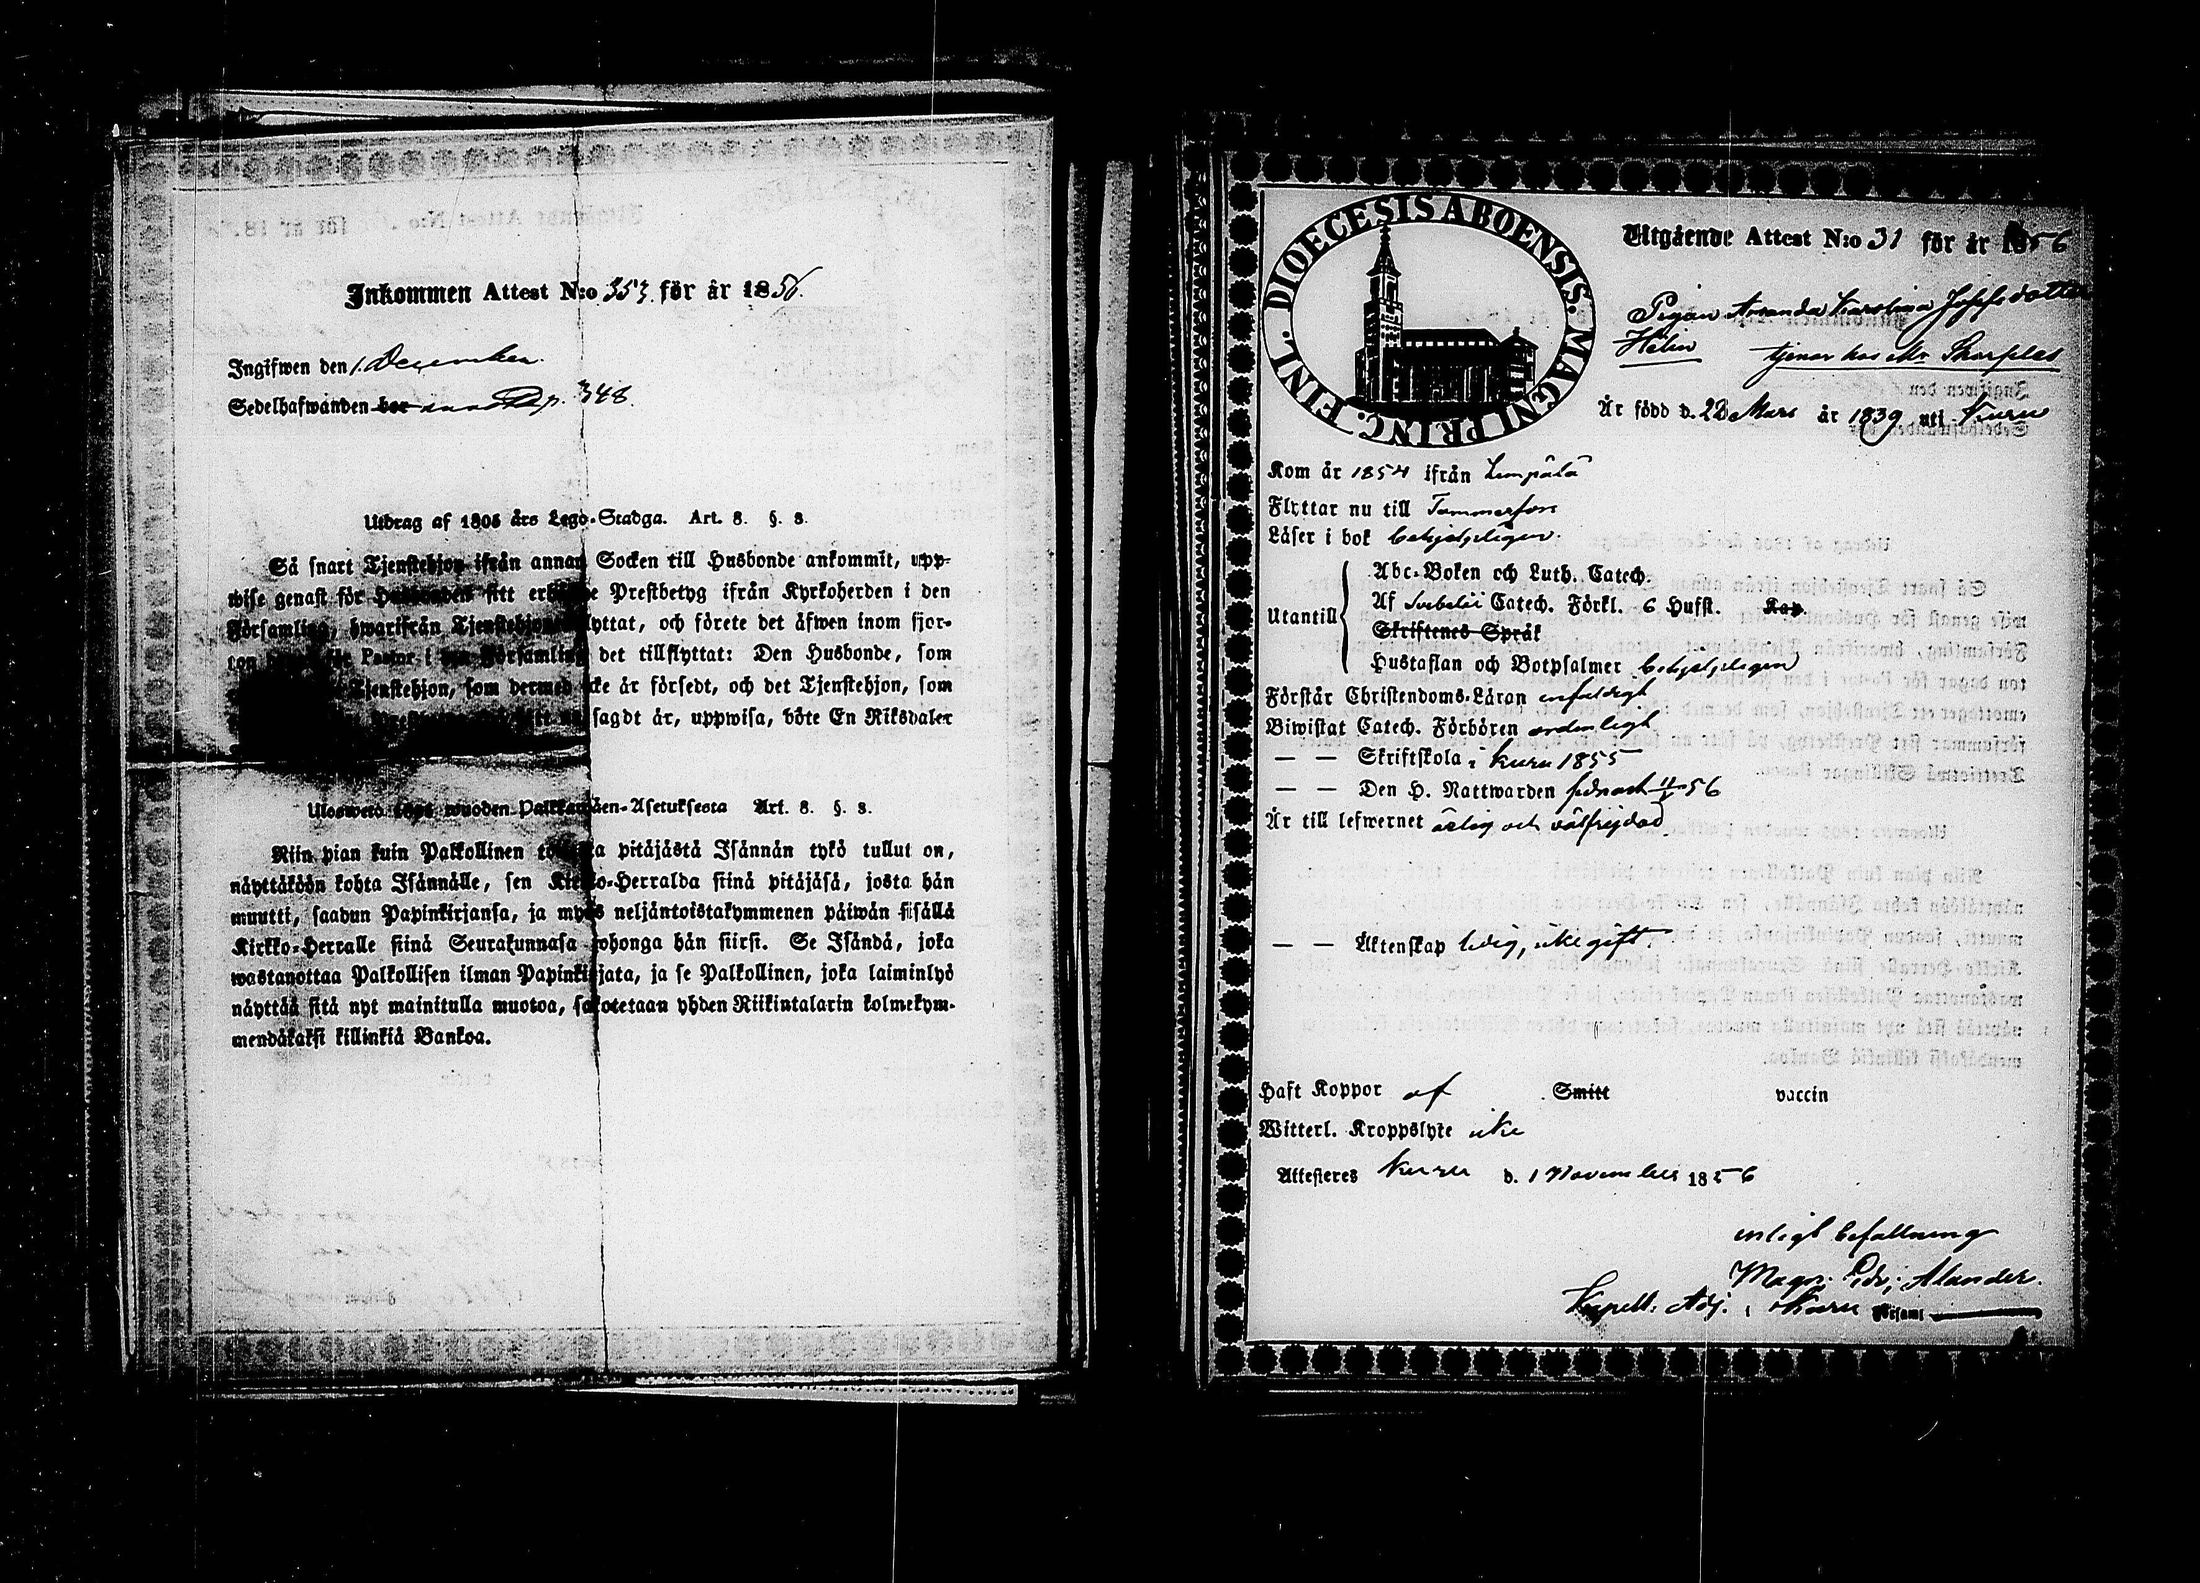 Inkommen Attest N:o 353 för år 1856.
Ingifwen den 1. December
Sedelhafwanden bor p. 348.
Utdrag af 1805 års Lego-Stadga. Art. 8. §. 8.
Så snart Tjenstehjon ifrån annan Socken till Husbonde ankommit, upp-
wise genast för Husbonden sitt Prestbetyg ifrån Kyrkoherden i den
Församling, hwarifrån Tjenstehjonet flyttat, och förete det äfwen inom fjor-
ton Pastor i den Församling det tillflyttat: Den Husbonde, som
Tjenstehjon, som dermed icke är försedt, och det Tjenstehjon, som
sagdt är, uppwisa, böte En Riksdaler
Ulosweto 1805 wuoden Palkkawäen-Asetuksesta Art. 8. §. 8.
Niin pian kuin Palkollinen toisesta pitäjästä Isännän tykö tullut on,
näyttäköön kohta Isännälle, sen Kirkko-Herralda siinä pitäjäsä, josta hän
muutti, saadun Papinkirjansa, ja myös neljäntoistakymmenen päiwän sisällä
Kirkko-Herralle siinä Seurakunnasa johonga hän siirsi. Se Isändä, joka
wastanottaa Palkollisen ilman Papinkirjata, ja se Palkollinen, joka laiminlyö
näyttää sitä nyt mainitulla muotoa, sakotetaan yhden Riikintalarin kolmekym-
mendäkaksi killinkiä Bankoa.
DIOECESIS ABOENSIS. MAGNI PRINC. FINL.
Utgående Attest N:o 31 för år 1856
Pigan Amanda Karolina Josefsdotter
Helin tjenar hos Mr Sharples
Är född d. 28 Mars år 1839 uti Kuru
Kom år 1854 ifrån Lempälä
Flyttar nu till Tammerfors
Läser i bok behjelpligen.
Abc-Boken och Luth. Catech.
Utantill Af Svebelii Catech. Förkl. 6 Hufst. Kap.
Skriftenes Språk
Hustaflan och Botpsalmer behjelpligen
Förstår Christendoms-Läran enfaldigt
Biwistat Catech. Förhören ordentligt
— — Skriftskola i Kuru 1855
— — Den H. Nattwarden 56
Är till lefwernet ärlig och välfrejdad
— — Äktenskap ledig, icke gift.
Haft Koppor af Smitt vaccin
Witterl. Kroppslyte icke
Attesteres Kuru d. 1 November 1856
enligt befallning
Magn. Edv. Alander.
Kapell. Adj. i Kuru Församl